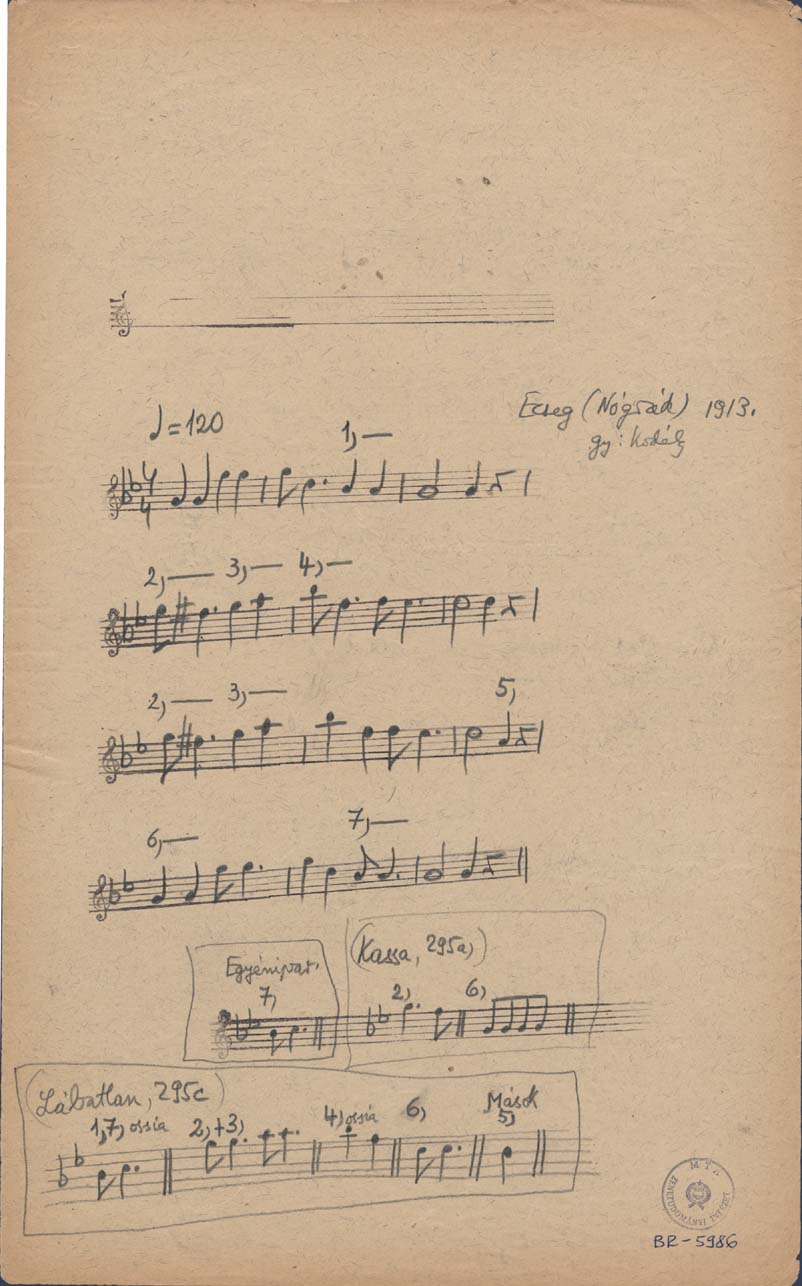 Ecseg (Nógrád) 1913.
♩=120
1,)
gy: Kodály
4/4
2,) 3,) 4,)
2,) 3,) 5,)
6,) 7,)
Egyénivar.
7,)
(Kassa, 295a,)
2,) 6,)
(Lábatlan, 295c)
1,7,) ossia 2,)+3,) 4,) ossia 6,) Mások
5,)
MTA
ZENETUDOMÁNYI INTÉZET
BR-5986